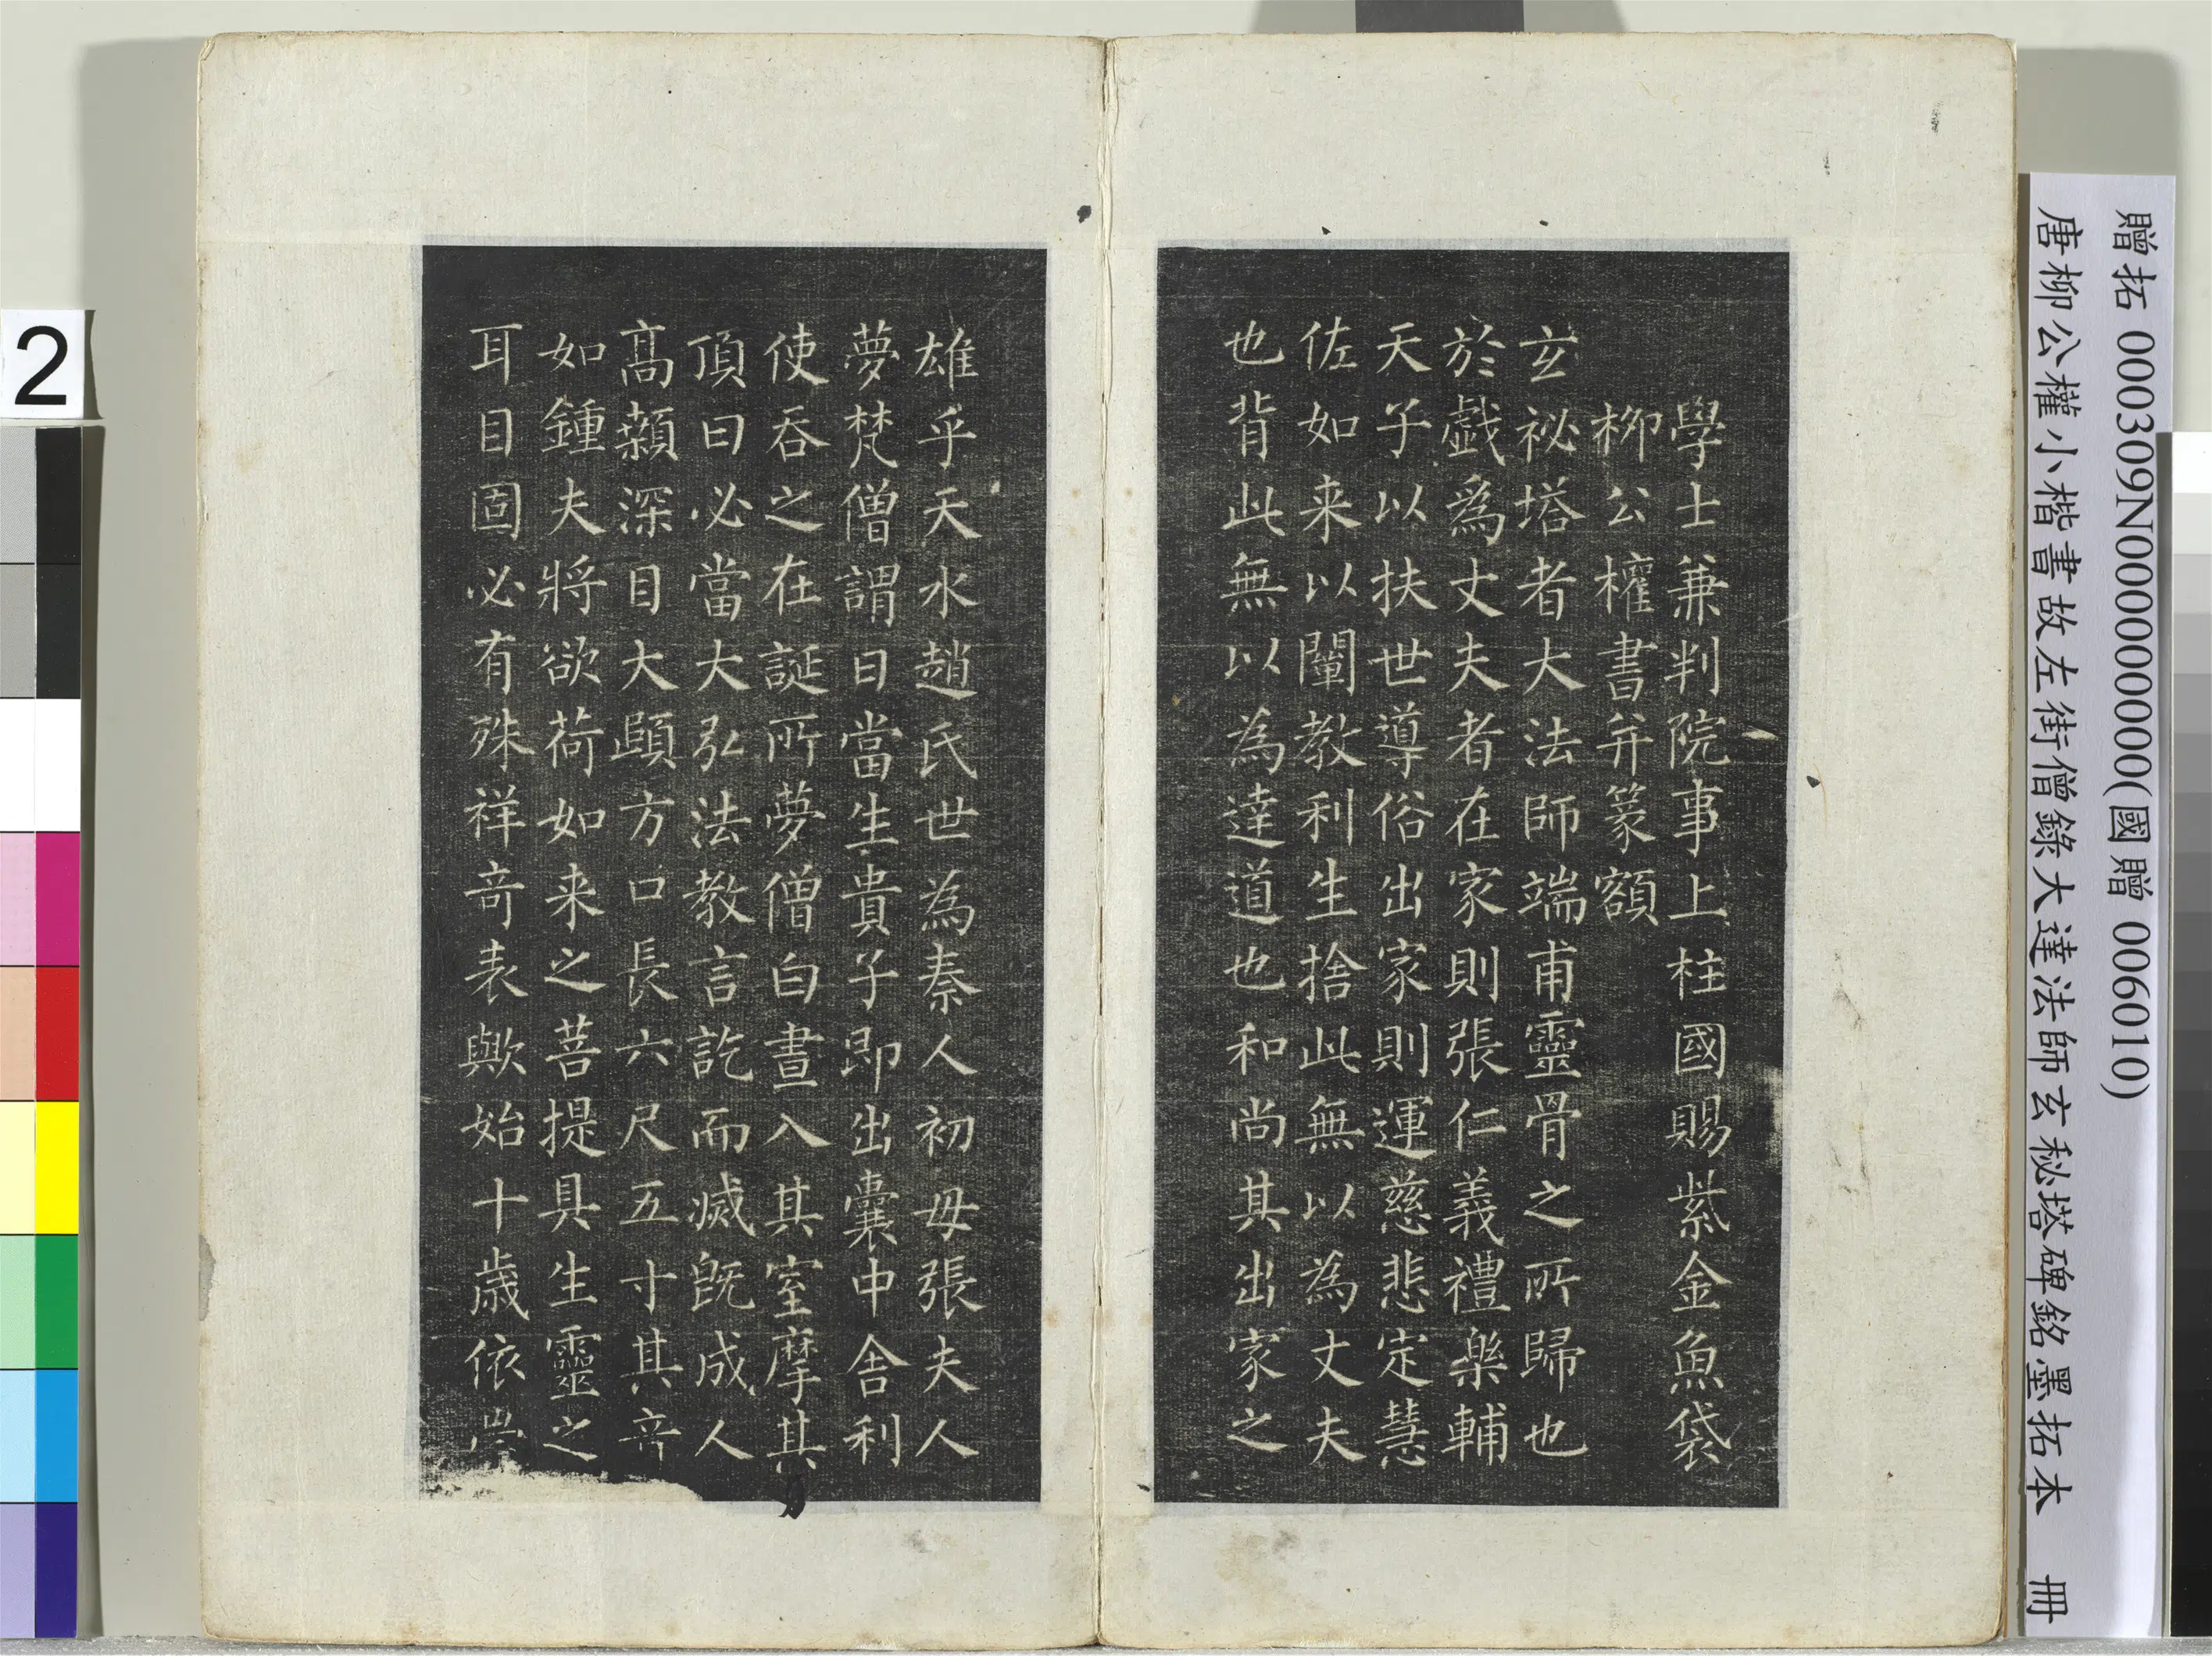 贈拓 000309N000000000(國贈 006010)
唐柳公權小楷書故左街僧錄大達法師玄秘塔碑銘墨拓本 冊
學士兼判院事上柱國賜紫金魚袋
柳公權書并篆額
玄祕塔者大法師端甫靈骨之所歸也
於戲為丈夫者在家則張仁義禮樂輔
天子以扶世導俗出家則運慈悲定慧
佐如来以闡教利生捨此無以為丈夫
也背此無以為達道也和尚其出家之
雄乎天水趙氏世為秦人初母張夫人
夢梵僧謂曰當生貴子即出囊中舍利
使吞之在誕所夢僧白晝入其室摩其
頂曰必當大弘法教言訖而滅既成人
高顙深目大頤方口長六尺五寸其音
如鍾夫將欲荷如来之菩提具生靈之
耳目固必有殊祥奇表歟始十歲依
2